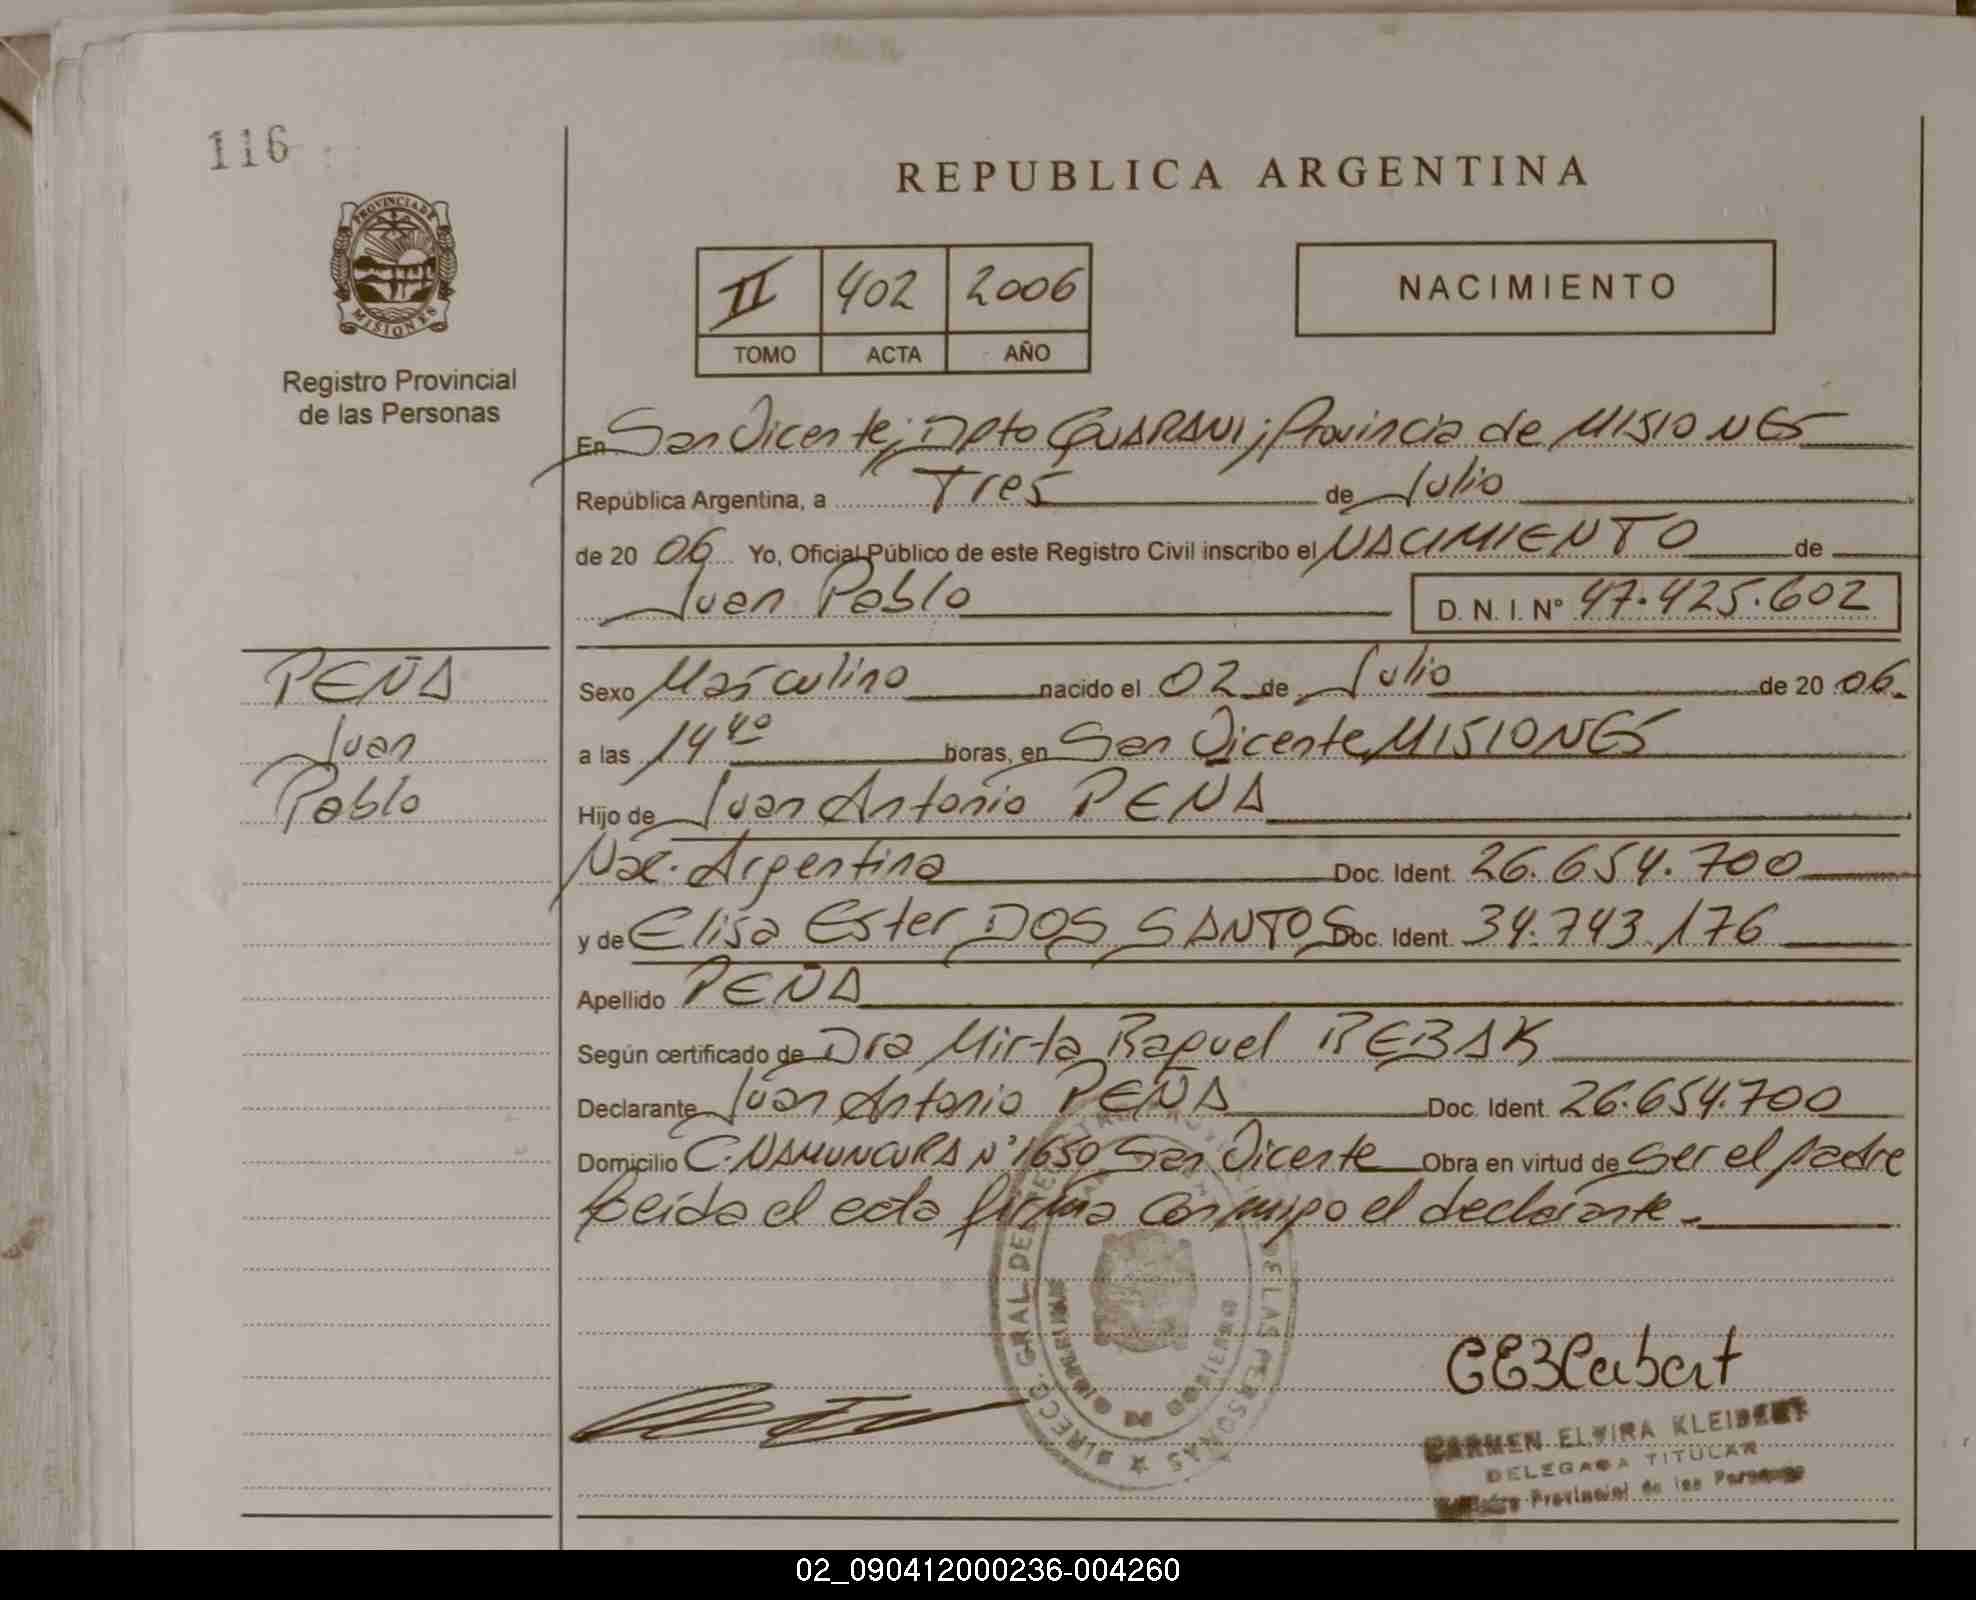 116
REPUBLICA ARGENTINA
PROVINCIA DE
MISIONES
Registro Provincial
de las Personas
II 402 2006
TOMO ACTA AÑO
NACIMIENTO
En San Vicente; Dpto GUARANI; Provincia de MISIONES
República Argentina, a Tres de Julio
de 20 06 Yo, Oficial Público de este Registro Civil inscribo el NACIMIENTO de
Juan Pablo D. N. I. Nº 47.425.602
PEÑA
Juan
Pablo
Sexo Masculino nacido el 02 de Julio de 20 06.
a las 14 40 horas, en San Vicente MISIONES
Hijo de Juan Antonio PEÑA
Nac. Argentina Doc. Ident. 26.654.700
y de Elisa Ester DOS SANTOS Doc. Ident. 34.743.176
Apellido PEÑA
Según certificado de Dra Mirta Raquel REBAK
Declarante Juan Antonio PEÑA Doc. Ident. 26.654.700
Domicilio C. NAMUNCURA Nº 1650 San Vicente Obra en virtud de ser el padre
Leida el acta firma conmigo el declarante.
DIRECC. GRAL. DEL DE LAS PERSONAS
CARMEN ELVIRA KLEIBERT
DELEGADA TITULAR
Provincial de las Personas
02_090412000236-004260